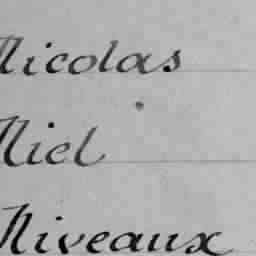 Nicolas
Niel
Niveaux